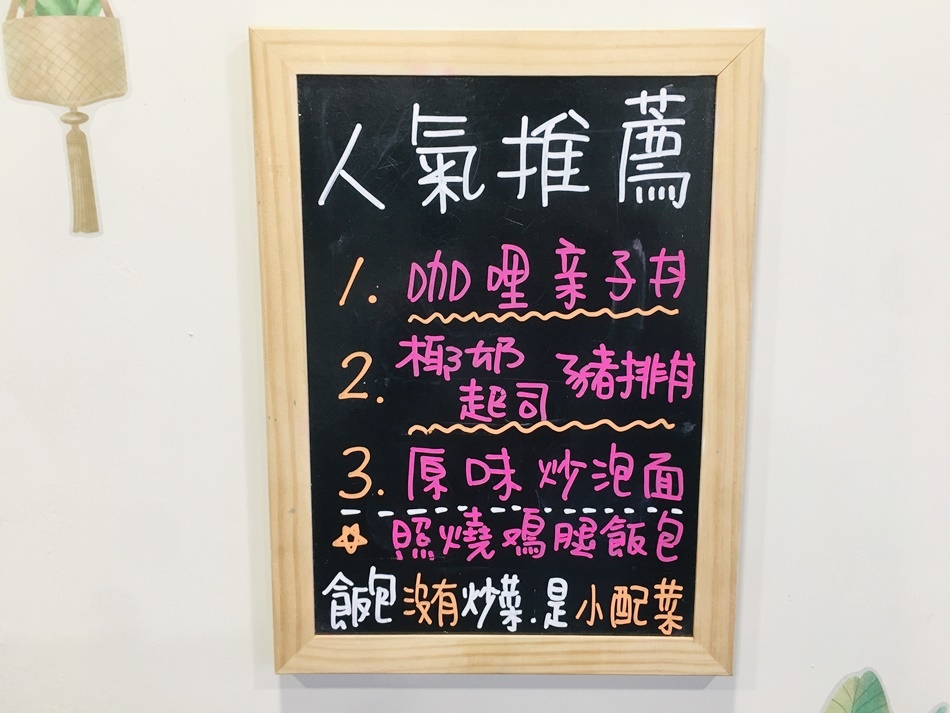 人氣推薦
1. 咖哩亲子丼
2. 椰奶起司 豬排丼
3. 原味炒泡面
☆ 照燒鳮腿飯包
飯包没有炒菜.是小配菜